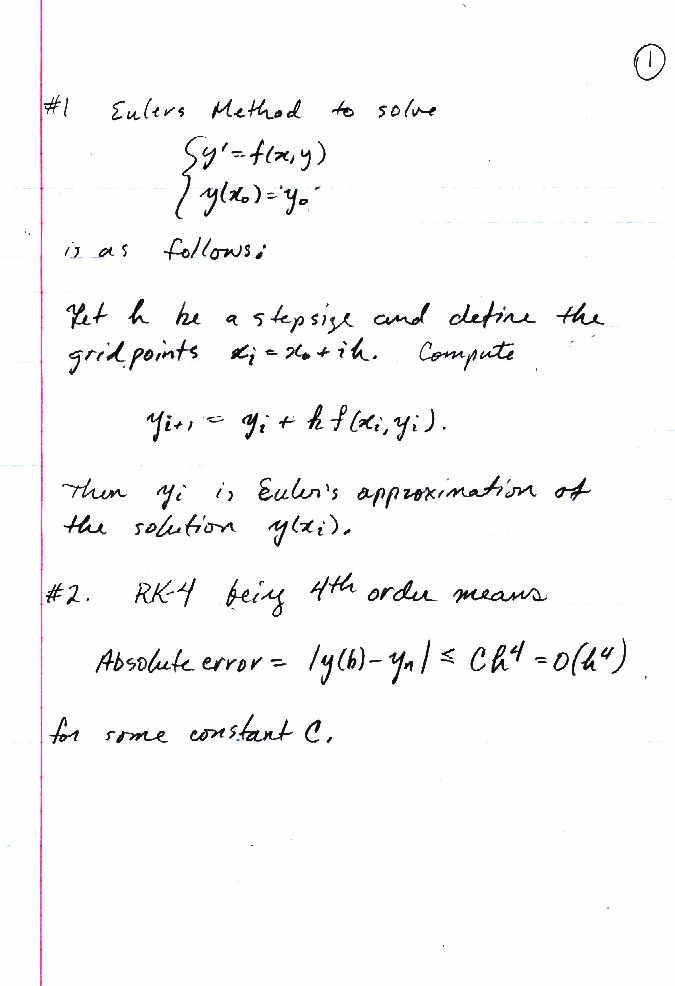 ①
#1 Eulers Method to solve
{ y' = f(x,y)
y(x₀) = y₀
is as follows:
Let h be a stepsize and define the
grid points xᵢ = x₀ + ih. Compute
yᵢ₊₁ = yᵢ + h f(xᵢ,yᵢ).
Then yᵢ is Euler's approximation of
the solution y(xᵢ).
#2. RK-4 being 4th order means
Absolute error = |y(b) - yₙ| ≤ Ch⁴ = O(h⁴)
for some constant C.